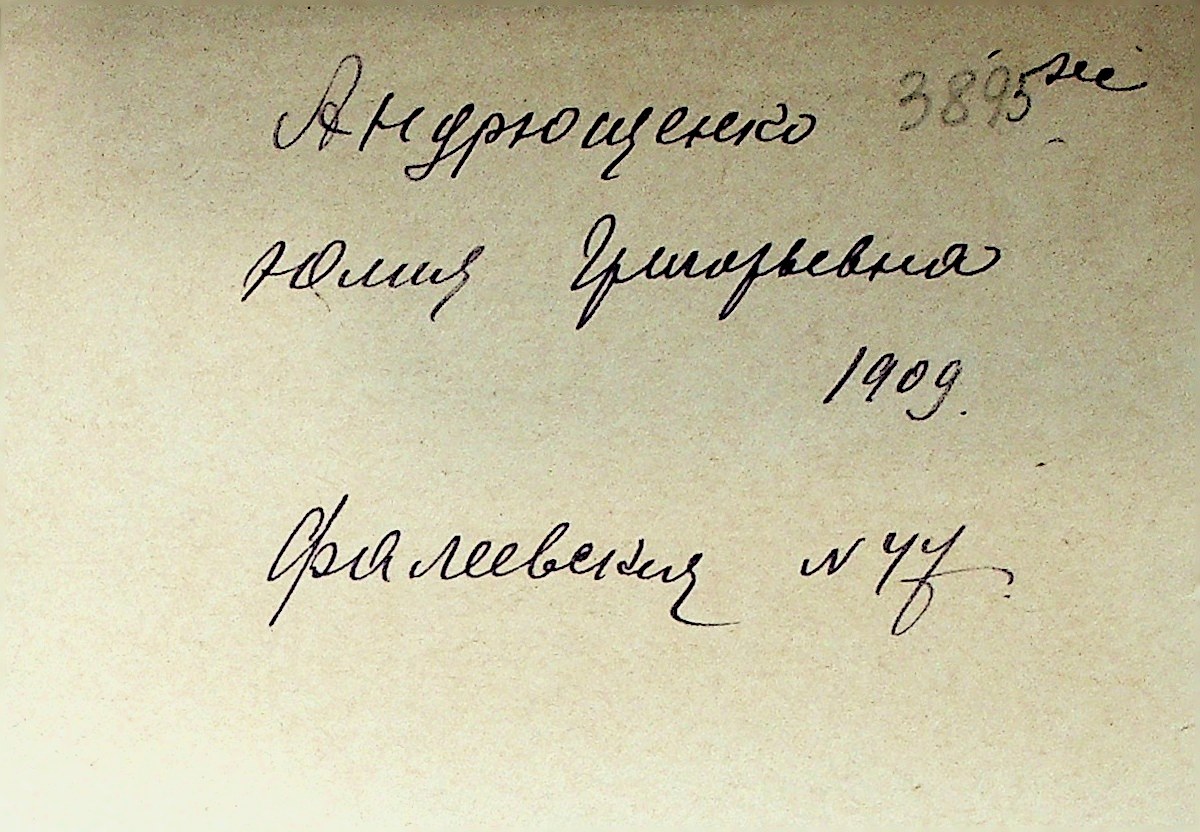 Андрющенко 3895
Юлия Григорьевна
1909.
Фалеевская